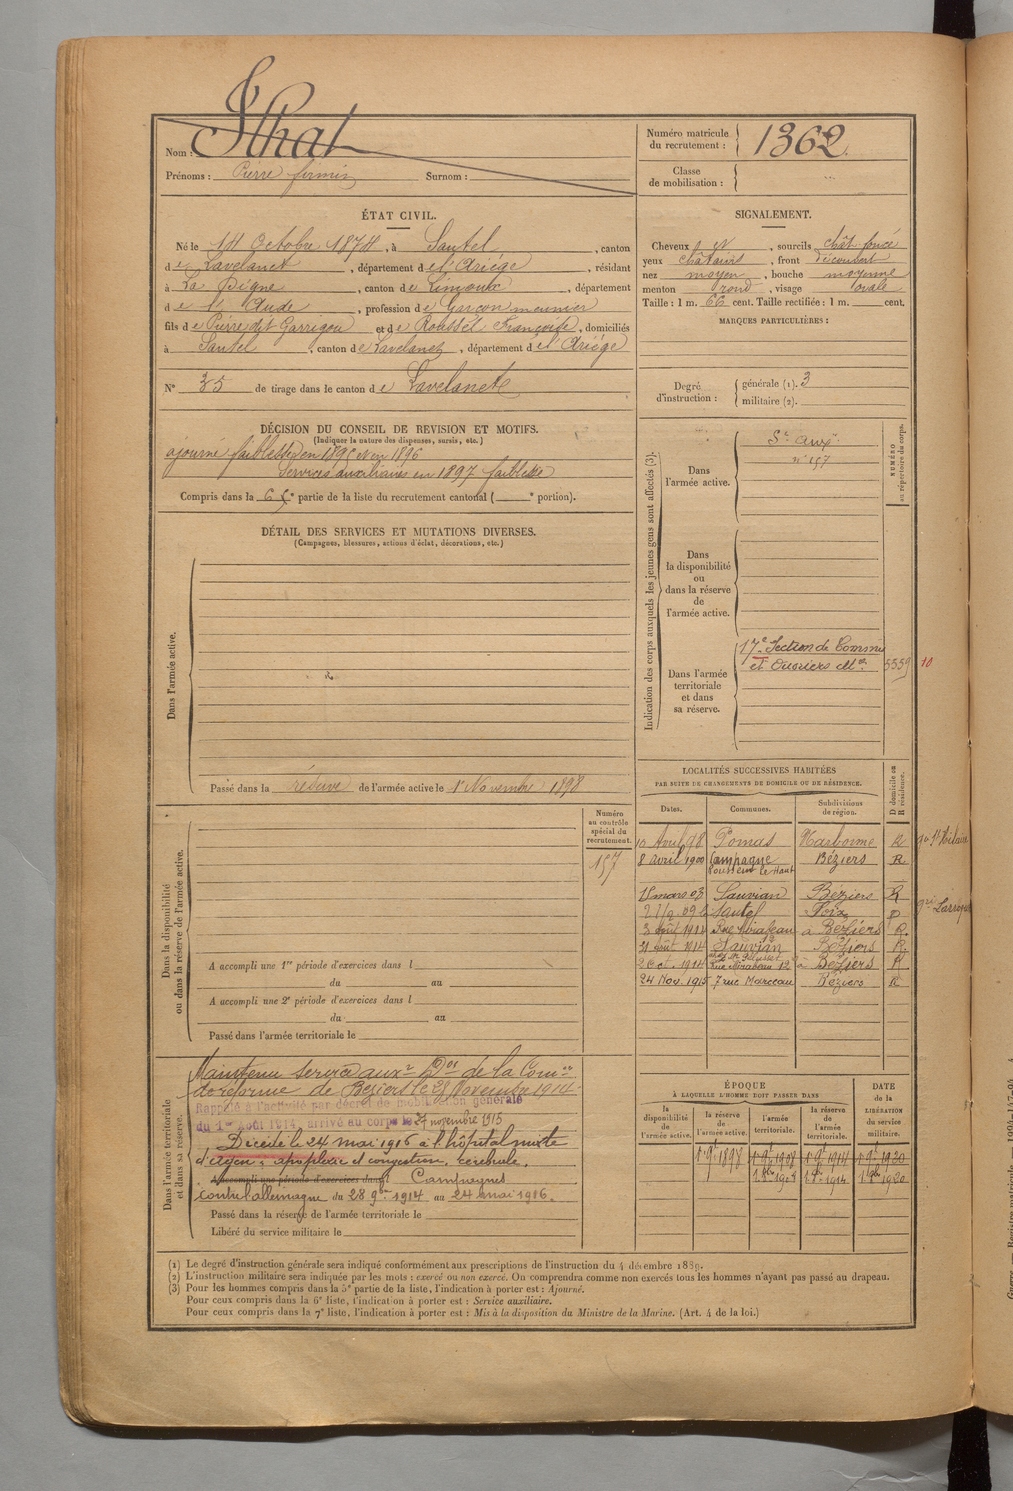 Nom :
Prénoms : Pierre firmin Surnom :
Numéro matricule du recrutement : 1362.
Classe de mobilisation :
ÉTAT CIVIL.
Né le 14 Octobre 1874, à Sautel, canton
de Lavelanet, département de l'Ariége, résidant
à La Digne, canton de Limoux, département
de l'Aude, profession de Garçon meunier
fils de Pierre dit Garrigou et de Roussel Françoise, domiciliés
à Sautel, canton de Lavelanet, département de l'Ariége
N° 35 de tirage dans le canton de Lavelanet
SIGNALEMENT.
Cheveux et, sourcils chât foncé
yeux châtains, front découvert
nez moyen, bouche moyenne
menton rond, visage ovale
Taille : 1 m. 66 cent. Taille rectifiée : 1 m. cent.
MARQUES PARTICULIÈRES :
Degré d'instruction : générale (1). 3
militaire (2).
DÉCISION DU CONSEIL DE REVISION ET MOTIFS.
(Indiquer la nature des dispenses, sursis, etc.)
ajourné faiblesse en 1895 et en 1896
Services auxiliaires en 1897 faiblesse
Compris dans la 6e partie de la liste du recrutement cantonal ( e portion).
DÉTAIL DES SERVICES ET MUTATIONS DIVERSES.
(Campagnes, blessures, actions d'éclat, décorations, etc.)
Dans l'armée active.
Passé dans la réserve de l'armée active le 1er Novembre 1898
Indication des corps auxquels les jeunes gens sont affectés (3).
NUMÉRO au répertoire du corps.
Dans l'armée active.
Sce auxre
n° 157
Dans la disponibilité ou dans la réserve de l'armée active.
Dans l'armée territoriale et dans sa réserve.
17e Section de Commis
et Ouvriers Mre
5559 10
Dans la disponibilité ou dans la réserve de l'armée active.
Numéro au contrôle spécial du recrutement.
157
A accompli une 1re période d'exercices dans l
du au
A accompli une 2e période d'exercices dans l
du au
Passé dans l'armée territoriale le
LOCALITÉS SUCCESSIVES HABITÉES
PAR SUITE DE CHANGEMENTS DE DOMICILE OU DE RÉSIDENCE.
Dates. Communes. Subdivisions de région. D domicile ou R résidence.
10 Avril 98 Pomas Narbonne R
8 avril 1900 Campagne Béziers R.
15 mars 03 Sauvian Béziers R
Sautel Foix D
3 Août 1914 Rue Mirabeau à Béziers R.
21 Août 1914 Sauvian Béziers R.
2 Oct. 1914 Rue Mirabeau 12 à Béziers R.
24 Nov. 1915 7 rue Marceau Béziers R
Dans l'armée territoriale et dans sa réserve.
Maintenu service auxre Don de la Comon
de réforme de Béziers le 25 Novembre 1914
Rappelé à l'activité par décret de mobilisation générale
du 1er Août 1914, arrivé au corps le 27 novembre 1915
Décédé le 24 mai 1916 à l'hôpital mixte
d'Agen : apoplexie et congestion cérébrale.
A accompli une période d'exercices dans l Campagnes
contre l'allemagne du 28 9bre 1914 au 24 mai 1916.
Passé dans la réserve de l'armée territoriale le
Libéré du service militaire le
ÉPOQUE
À LAQUELLE L'HOMME DOIT PASSER DANS
la disponibilité de l'armée active. la réserve de l'armée active. l'armée territoriale. la réserve de l'armée territoriale.
DATE de la LIBÉRATION du service militaire.
1er 9bre 1898 1er 9bre 1908 1er 9bre 1914 1er 9bre 1920
(1) Le degré d'instruction générale sera indiqué conformément aux prescriptions de l'instruction du 4 décembre 1889.
(2) L'instruction militaire sera indiquée par les mots : exercé ou non exercé. On comprendra comme non exercés tous les hommes n'ayant pas passé au drapeau.
(3) Pour les hommes compris dans la 5e partie de la liste, l'indication à porter est : Ajourné.
Pour ceux compris dans la 6e liste, l'indication à porter est : Service auxiliaire.
Pour ceux compris dans la 7e liste, l'indication à porter est : Mis à la disposition du Ministre de la Marine. (Art. 4 de la loi.)